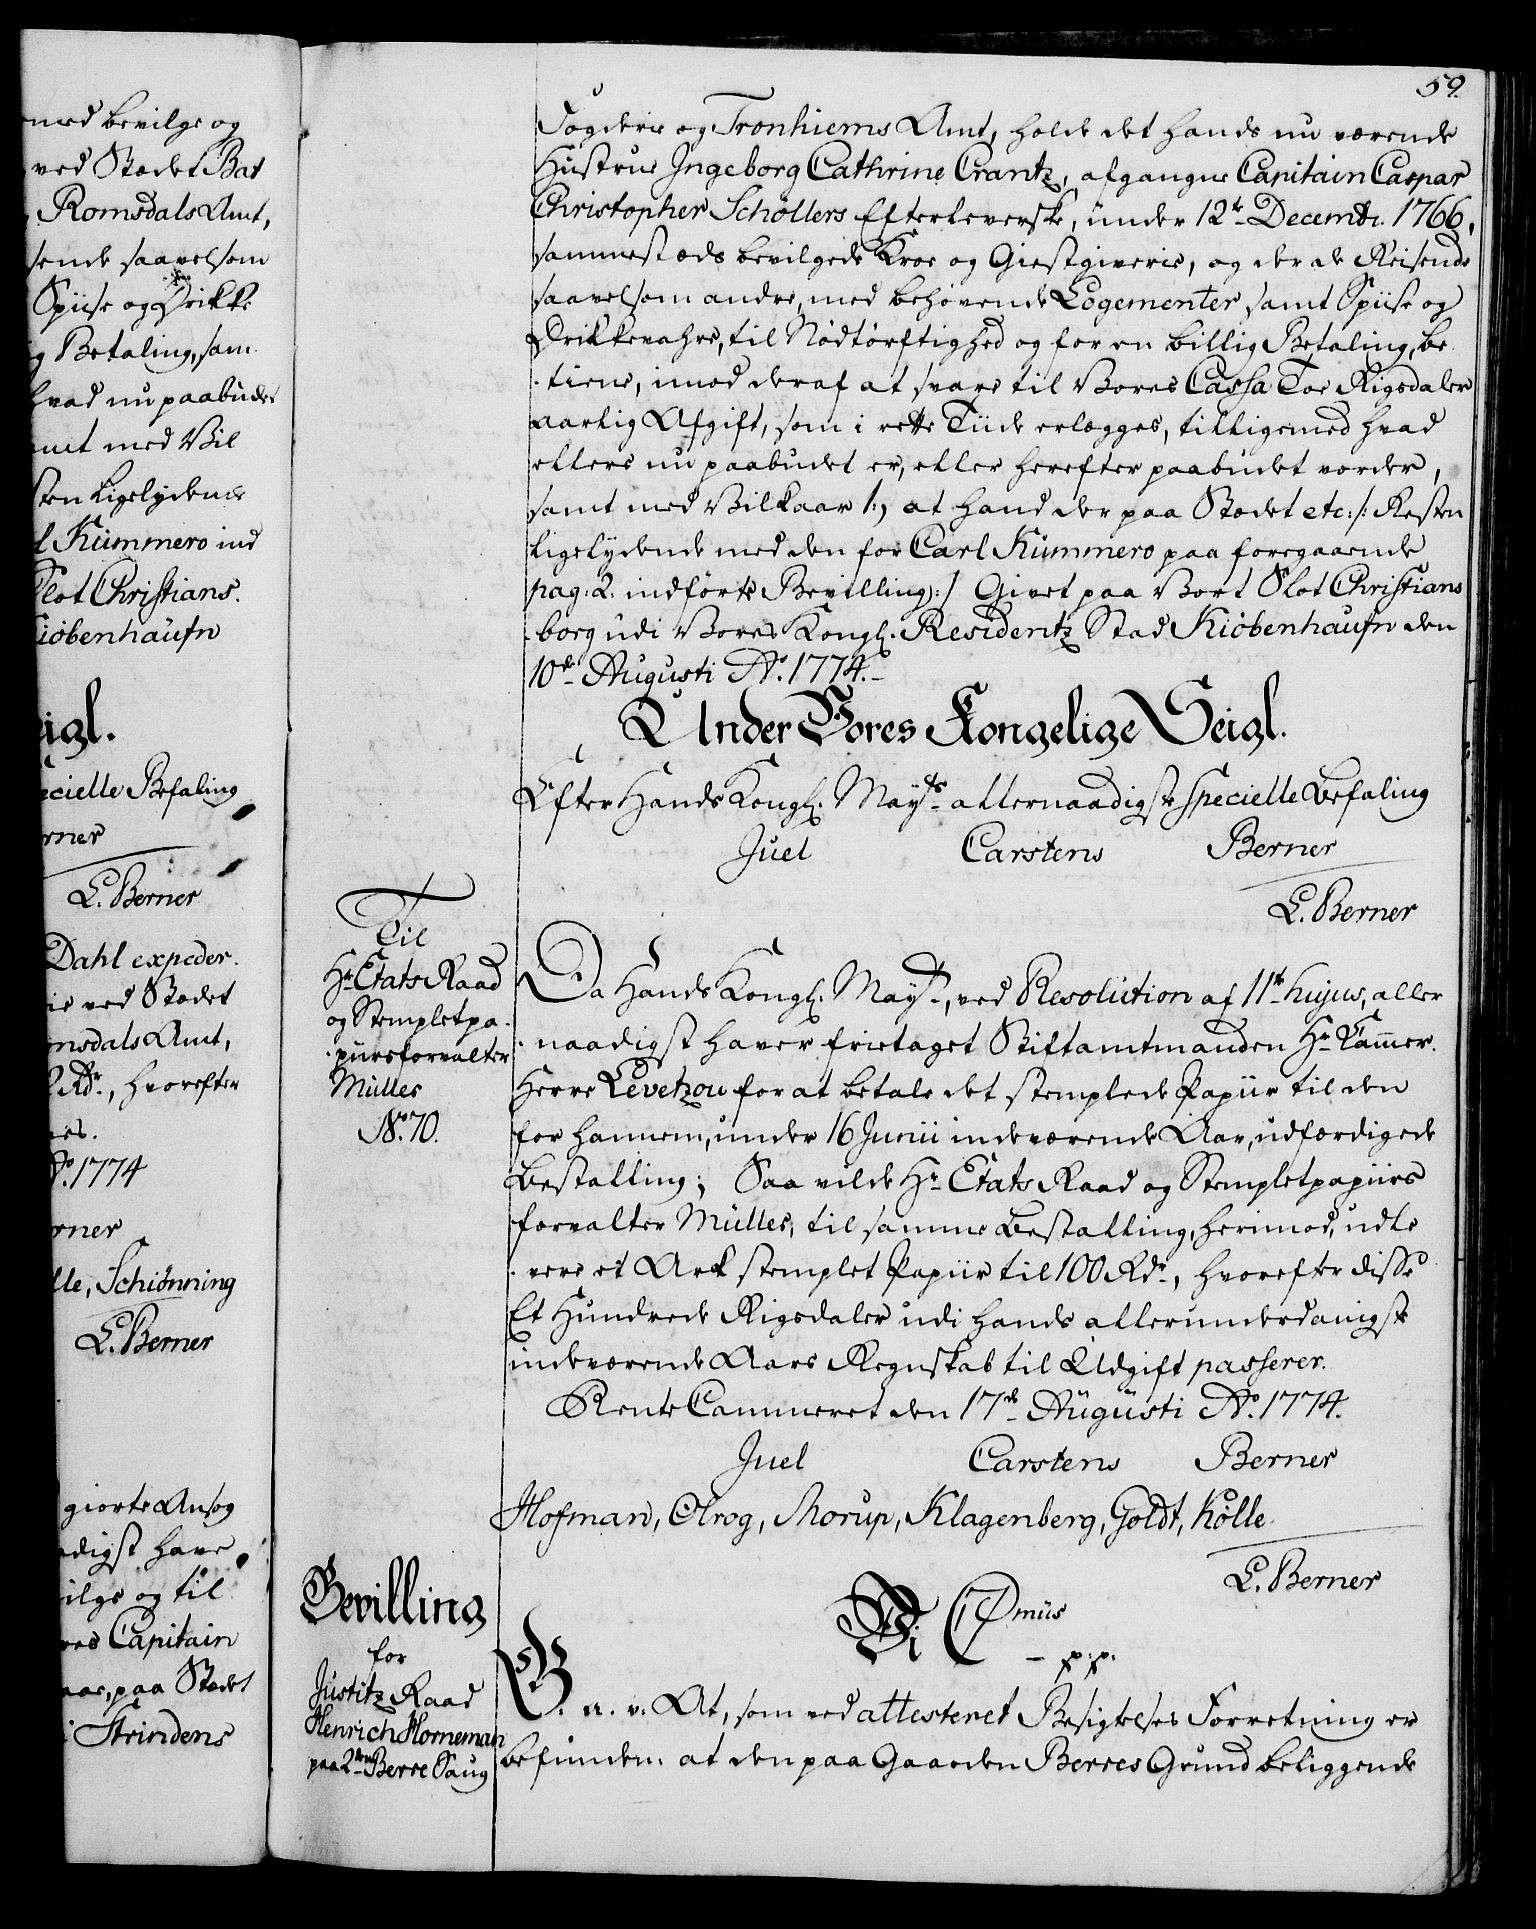 med bevilge og
ved Stædet Bat
Romsdals Amt,
sende saavelsom
Spiise og Drikke
g Betaling, sam
hvad nu paabudet
amt med Vil
sten ligelydende
l Kümmero ind
Slot Christians.
Kiöbenhaufn
eigl.
ecielle Befaling
erner
L. Berner
Dahl expeder.
ie ved Stædet
omsdals Amt,
2 Rdr., hvorefter
No. 1774
erner
lle, Schiönning
L. Berner
giorte Ansøg
adigst have
vilge og til
res Capitain
aar, paa Stædet
i Strindens
59.
Fogderie og Tronhiems Amt, holde det hands nu værende
Hustrue Ingeborg Cathrine Crantz, afgangne Capitain Caspar
Christopher Schöllers Efterleverske, under 12te Decembr. 1766,
sammestæds bevilgede Kroe og Giestgiverie, og der de Reisende
saavelsom andre, med behøvende Logementer samt Spiise og
Drikkevahre, til Nödtörftighed og for en billig Betaling, be
-tiene, imod deraf at svare til Vores Cassa Toe Rigsdaler
aarlig Afgift, som i rette Tiide erlægges, tilligemed hvad
ellers nu paabudet er, eller herefter paabudet vorder,
samt med Vilkaar 1:, at hand der paa Stædet etc:/: Resten
ligelydende med den for Carl Kümmero paa foregaaende
pag: 2. indförte Bevilling:/ Givet paa Vort Slot Christians
-borg udi Vores Kongl. Residentz Stad Kiöbenhaufn den
10de Augusti Ao. 1774.
Under Vores Kongelige Seigl.
Efter Hands Kongl. Mayts allernaadigste specielle Befaling
Juel Carstens Berner
L. Berner
Til
Hr Etats Raad
og Stempletpa-
-piirsforvalter
Müller
No. 70.
Da Hands Kongl. Mayt., ved Resolution af 11te hujus, aller
-naadigst haver frietaget Stiftamtmanden Hr Kammer-
Herre Levetzou for at betale det stemplede Papiir til den
for hannem, under 16 Junii indeværende Aar, udfærdigede
Bestalling; Saa vilde Hr Etats Raad og Stempletpapiirs
forvalter Müller, til samme Bestalling, herimod, udle
-vere et Ark stemplet Papiir til 100 Rdr., hvorefter disse
Et Hundrede Rigsdaler udi hands allerunderdanigste
indeværende Aars Regnskab til Udgift passerer.
Rente Cammeret den 17de Augusti Ao. 1774.
Juel Carstens Berner
Hofman, Olrog, Morup, Klagenberg, Goldt, Kölle
L. Berner
Bevilling
for
Justitz Raad
Henrich Horneman
paa 2de Berre Saug
Vi C 7mus
p: p:
G. A. V. At, som ved attesteret Besigtelses Forretning er
befunden: at den paa Gaarden Berres Grund beliggende